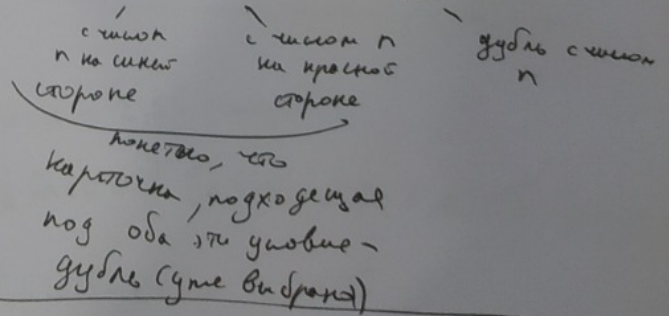 с числом
n на синей
стороне
с числом n
на красной
стороне
дубль с числом
n
понятно, что
карточка, подходящая
под оба эти условие -
дубль (уже выбрана)